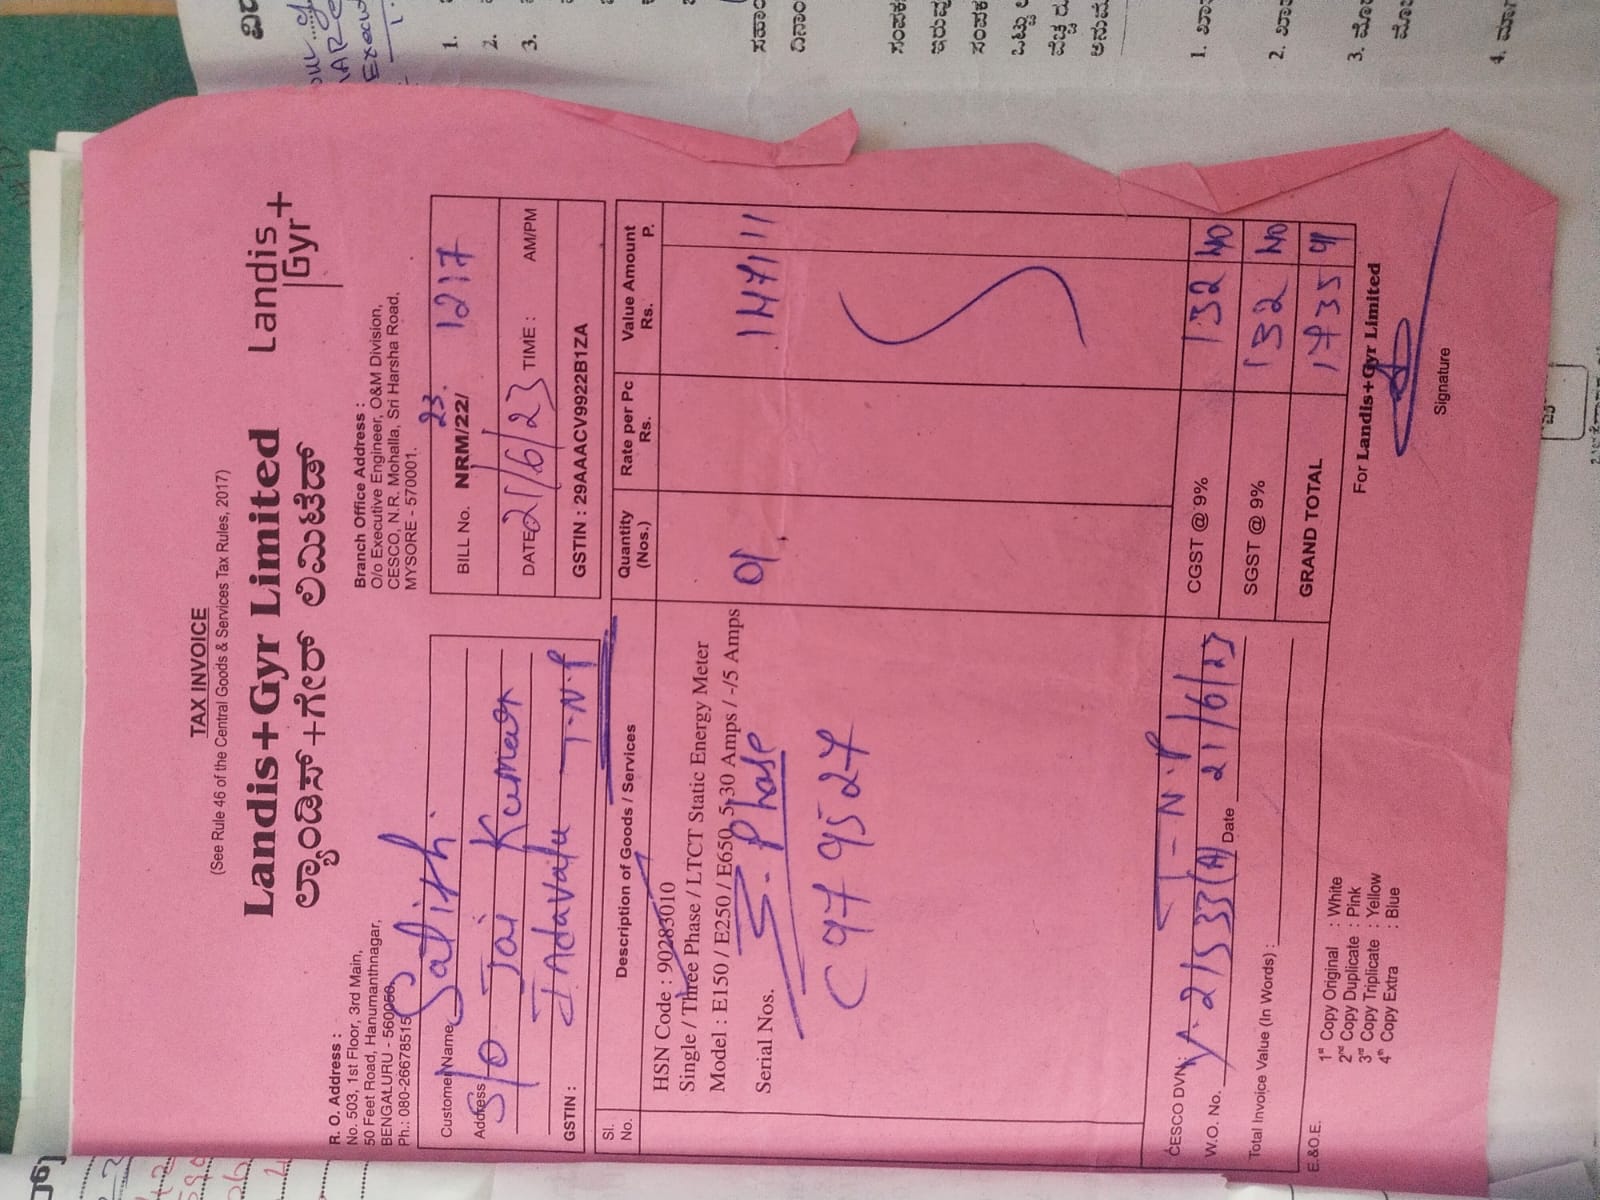 TAX INVOICE
(See Rule 46 of the Central Goods & Services Tax Rules, 2017)
Landis+Gyr Limited
ಲ್ಯಾಂಡಿಸ್+ಗೇರ್ ಲಿಮಿಟೆಡ್
Landis+
Gyr
R. O. Address :
No. 503, 1st Floor, 3rd Main,
50 Feet Road, Hanumanthnagar,
BENGALURU - 560050.
Ph.: 080-26678515
Branch Office Address :
O/o Executive Engineer, O&M Division,
CESCO, N.R. Mohalla, Sri Harsha Road,
MYSORE - 570001.
Customer Name Satish.
Address S/o Jai Kumar
T-N.P
GSTIN :
BILL No. NRM/22/23. 1217
DATE 21/6/23 TIME : AM/PM
GSTIN : 29AAACV9922B1ZA
Sl. No. Description of Goods / Services Quantity (Nos.) Rate per Pc Rs. Value Amount Rs. P.
HSN Code : 90283010
Single / Three Phase / LTCT Static Energy Meter
Model : E150 / E250 / E650 5-30 Amps / -/5 Amps 01 1471 11
Serial Nos. S. Phase
C9795274
CESCO DVN: T-N.P
W.O. No. Date 21/6/23
Total Invoice Value (In Words) :
CGST @ 9% 132 40
SGST @ 9% 132 40
GRAND TOTAL
E.&O.E.
1st Copy Original : White
2nd Copy Duplicate : Pink
3rd Copy Triplicate : Yellow
4th Copy Extra : Blue
For Landis+Gyr Limited
Signature